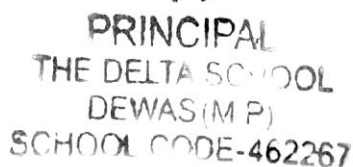 PRINCIPAL
THE DELTA SCHOOL
DEWAS (M P)
SCHOOL CODE-462267